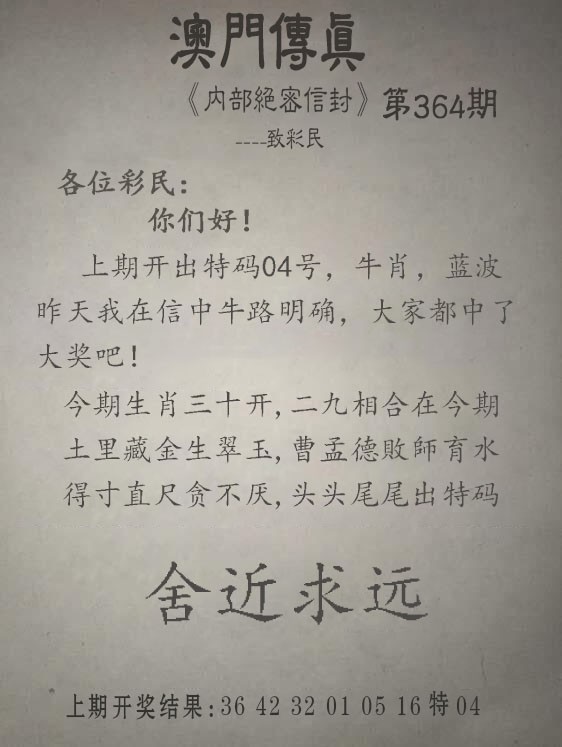 澳門傳真
《内部絕密信封》第364期
----致彩民
各位彩民：
你们好！
上期开出特码04号，牛肖，蓝波
昨天我在信中牛路明确，大家都中了
大奖吧！
今期生肖三十开,二九相合在今期
土里藏金生翠玉,曹孟德敗師育水
得寸直尺贪不厌,头头尾尾出特码
舍近求远
上期开奖结果:36 42 32 01 05 16 特 04